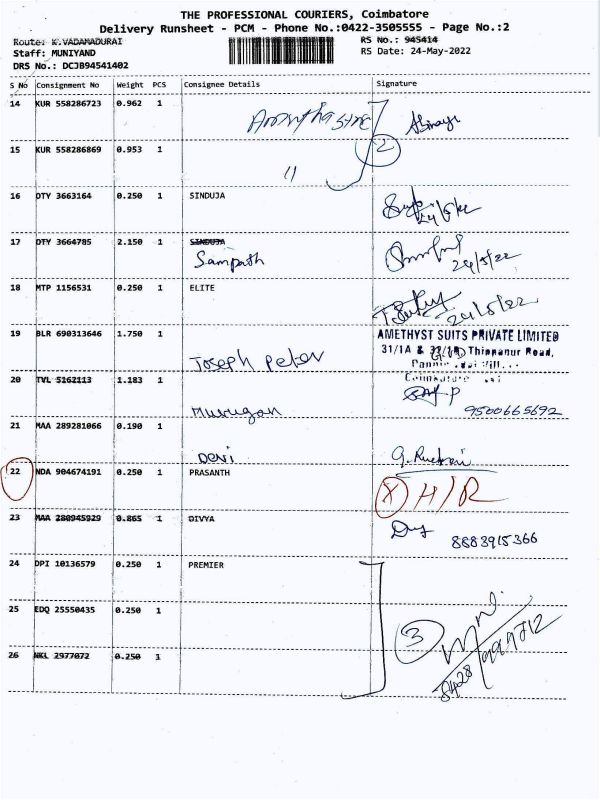 THE PROFESSIONAL COURIERS, Coimbatore
Delivery Runsheet - PCM - Phone No.:0422-3505555 - Page No.:2
Route: K.VADAMADURAI RS No.: 945414
Staff: MUNIYAND RS Date: 24-May-2022
DRS No.: DCJB94541402
S No Consignment No Weight PCS Consignee Details Signature
14 KUR 558286723 0.962 1
15 KUR 558286869 0.953 1 2
11
16 DTY 3663164 0.250 1 SINDUJA
24/5/22
17 DTY 3664785 2.150 1 SINDUJA
Sampath 24/5/22
18 MTP 1156531 0.250 1 ELITE
24/5/22
19 BLR 690313646 1.750 1 AMETHYST SUITS PRIVATE LIMITED
31/1A & Thippanur Road,
Joseph Peter
20 TVL 5162113 1.183 1
Murugan 9500665692
21 MAA 289281066 0.190 1
Devi
22 NDA 904674191 0.250 1 PRASANTH X H/R
23 MAA 280945929 0.865 1 DIVYA
8883915366
24 DPI 10136579 0.250 1 PREMIER
25 EDQ 25550435 0.250 1
3
26 NKL 2977072 0.250 1